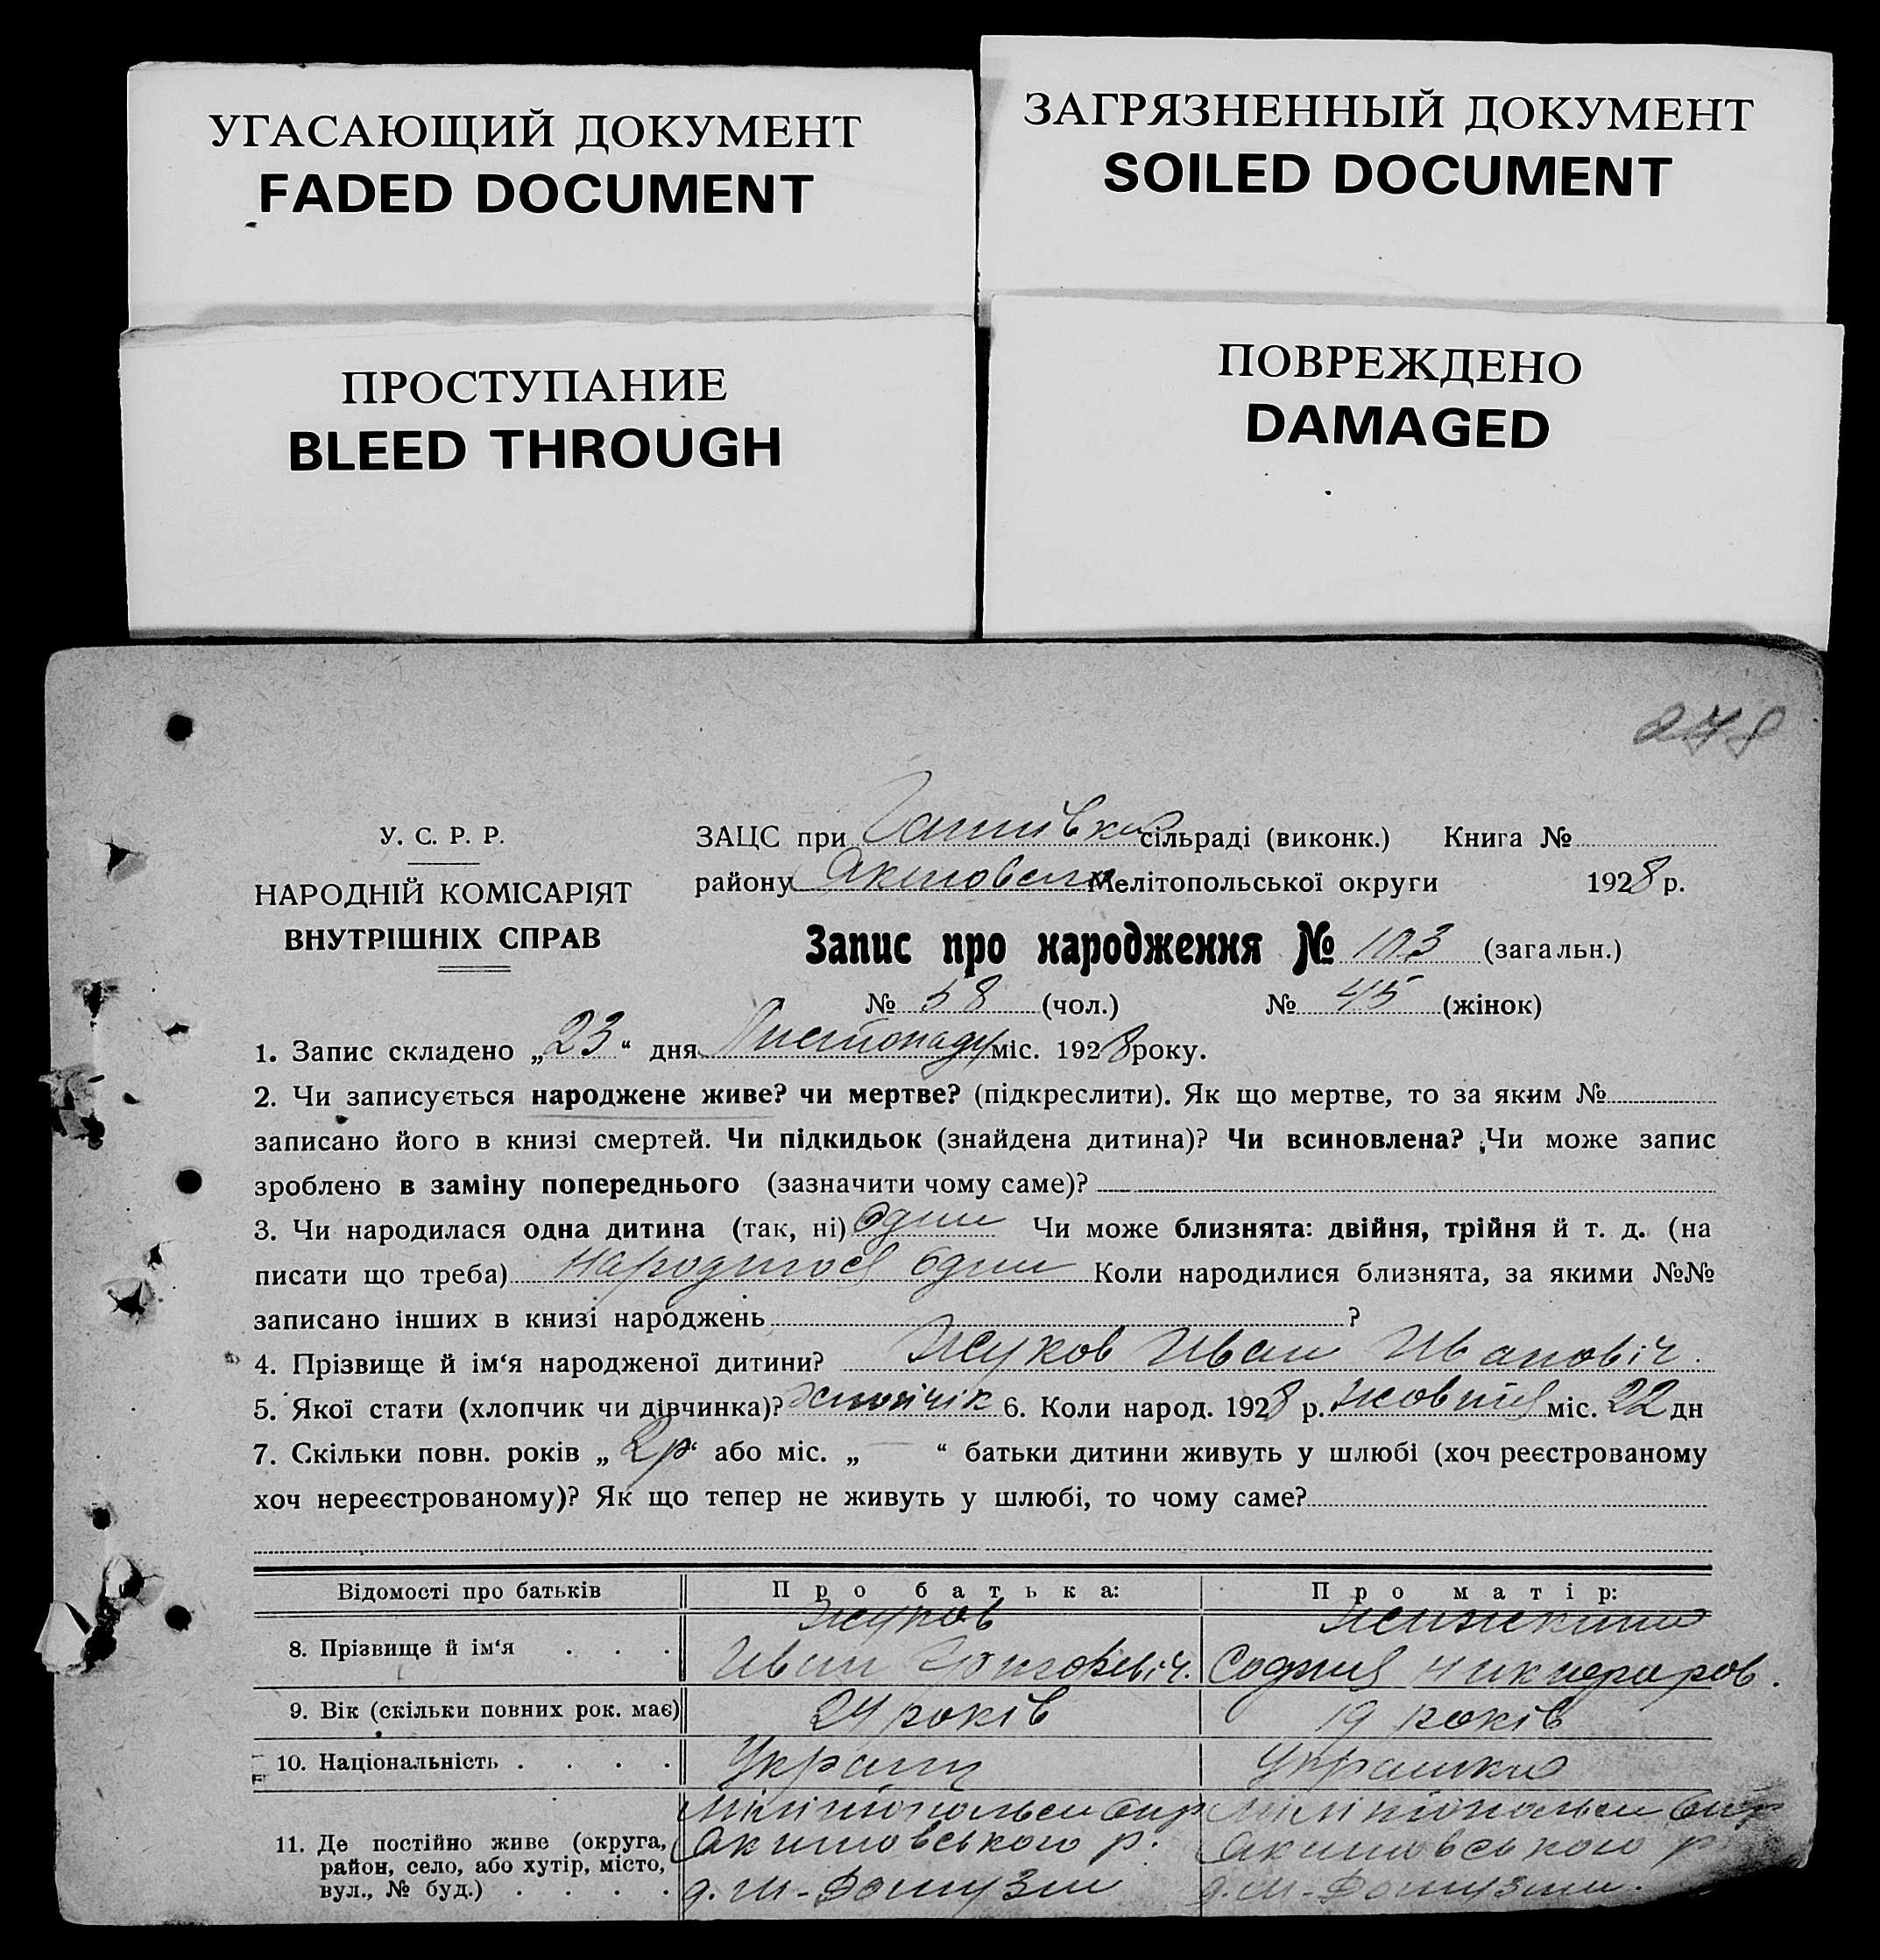 УГАСАЮЩИЙ ДОКУМЕНТ
FADED DOCUMENT
ЗАГРЯЗНЕННЫЙ ДОКУМЕНТ
SOILED DOCUMENT
ПРОСТУПАНИЕ
BLEED THROUGH
ПОВРЕЖДЕНО
DAMAGED
У. С. Р. Р.
НАРОДНІЙ КОМІСАРІЯТ
ВНУТРІШНІХ СПРАВ
ЗАЦС при сільраді (виконк.) Книга №
району Мелітопольської округи 1928 р.
Запис про народження № 103 (загальн.)
№ 58 (чол.) № 45 (жінок)
1. Запис складено „23“ дня Листопаду міс. 1928 року.
2. Чи записується народжене живе? чи мертве? (підкреслити). Як що мертве, то за яким №
записано його в книзі смертей. Чи підкидьок (знайдена дитина)? Чи всиновлена? Чи може запис
зроблено в заміну попереднього (зазначити чому саме)?
3. Чи народилася одна дитина (так, ні) Чи може близнята: двійня, трійня й т. д. (на
писати що треба) Коли народилися близнята, за якими №№
записано інших в книзі народжень ?
4. Прізвище й ім‘я народженої дитини? Жуков Иван Ивановіч.
5. Якої стати (хлопчик чи дівчинка)? хлопчік 6. Коли народ. 1928 р. жовтня міс. 22 дн
7. Скільки повн. років „2р“ або міс. „—“ батьки дитини живуть у шлюбі (хоч реєстрованому
хоч нереєстрованому)? Як що тепер не живуть у шлюбі, то чому саме?
Відомості про батьків Про батька: Про матір:
8. Прізвище й ім‘я . . . Жуков
Иван София
9. Вік (скільки повних рок. має) 24 років 19 років
10. Національність . . . .
11. Де постійно живе (округа, Акимовського р. Акимовського р
район, село, або хутір, місто,
вул., № буд.) . . . .